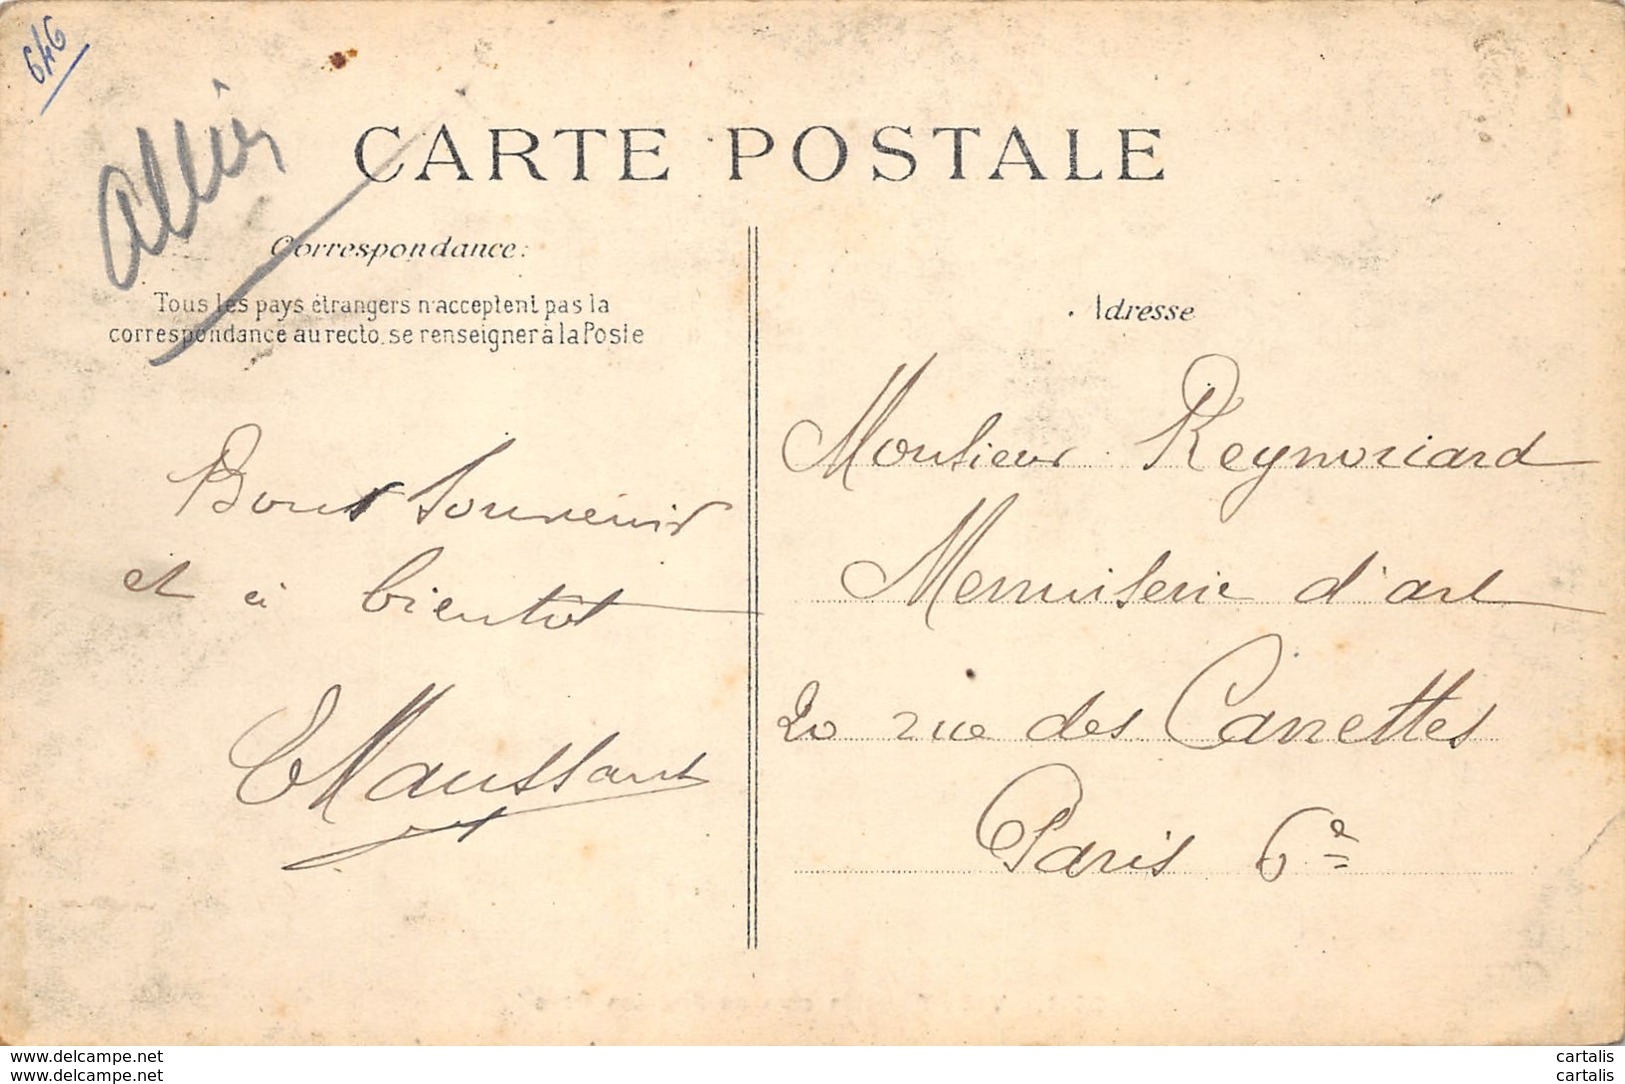 646
Allier
CARTE POSTALE
Correspondance:
Tous les pays étrangers n'acceptent pas la
correspondance au recto. se renseigner à la Poste
Bons Souvenirs
et à bientôt
Maussant
Adresse
Monsieur
Menuiserie d'art
20 rue des Canettes
Paris 6e
www.delcampe.net
cartalis
www.delcampe.net
cartalis